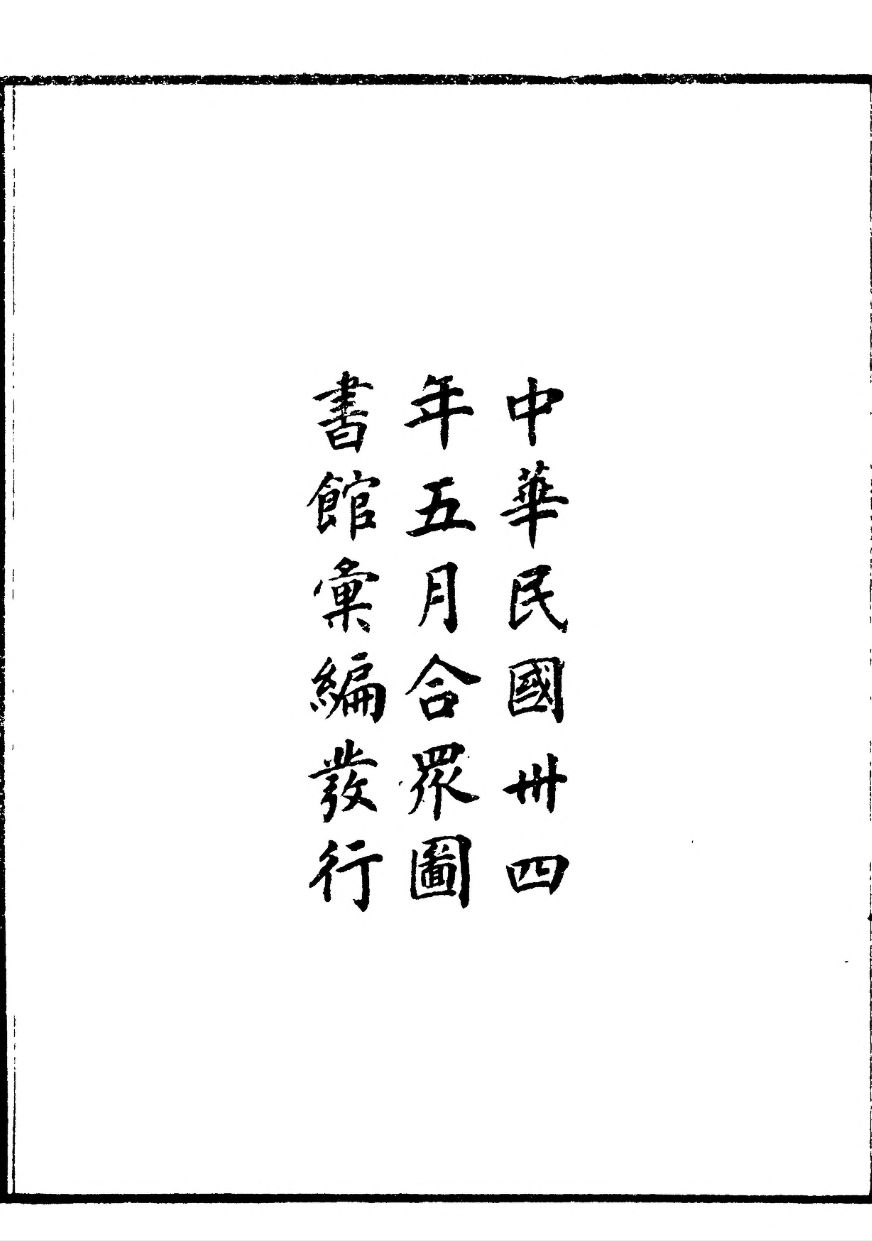 中華民國卅四
年五月合眾圖
書館彙編發行